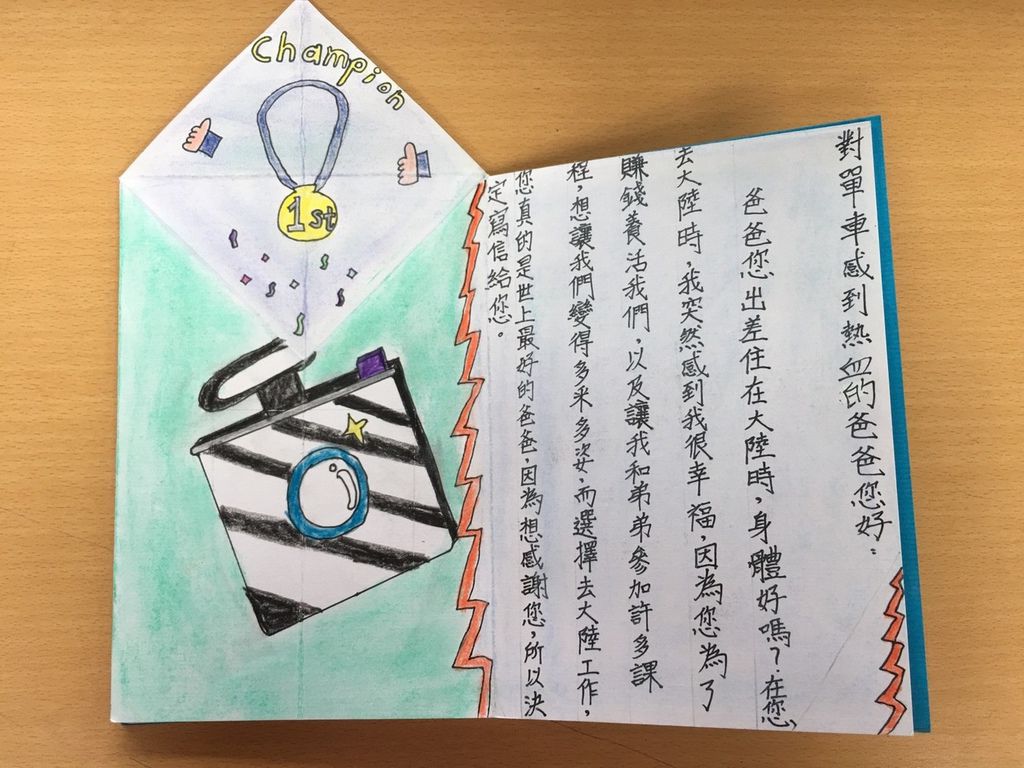 Champion
1st
對單車感到熱血的爸爸您好：
爸爸您出差住在大陸時，身體好嗎？在您
去大陸時，我突然感到我很幸福，因為您為了
賺錢養活我們，以及讓我和弟弟參加許多課
程，想讓我們變得多采多姿，而選擇去大陸工作，
您真的是世上最好的爸爸，因為想感謝您，所以決
定寫信給您。